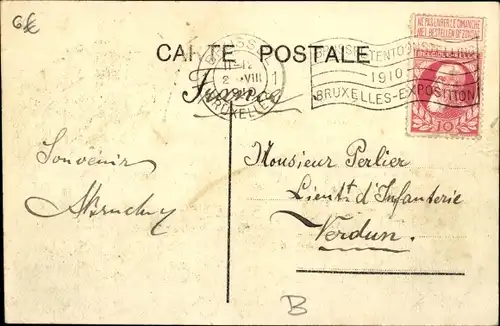 6
CARTE POSTALE
NE PAS LIVRER LE DIMANCHE
NIET BESTELLEN OP ZONDAG
BRUSSEL
VIII
1
BRUXELLES
TENTOONSTELLING
1910
BRUXELLES-EXPOSITION
10
France
Souvenir
Monsieur Perlier
Lieutt d'Infanterie
Verdun.
B